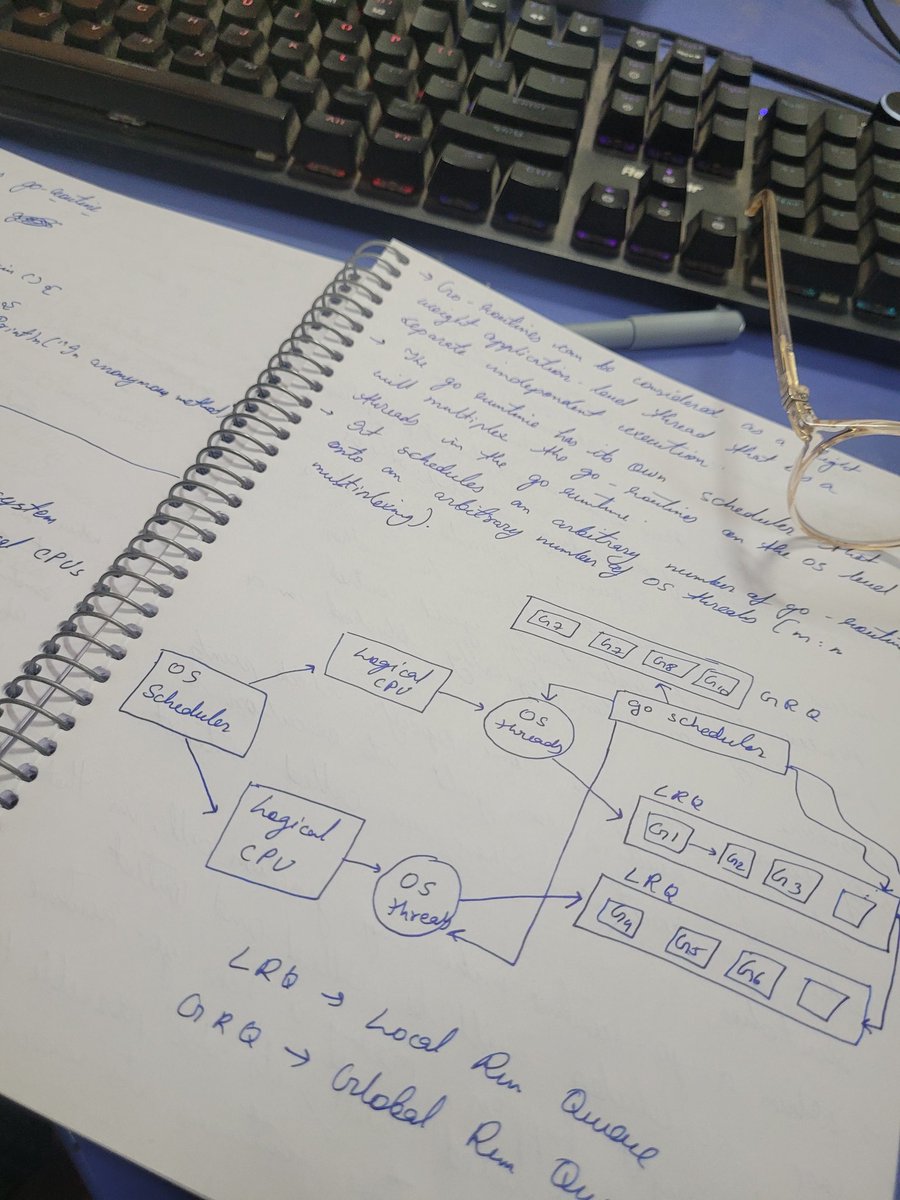 go routine
in () {
Println("In anonymous method
system
CPUs
→ Go-Routines can be considered as a light
weight application-level thread that is a
separate independent execution.
→ The go runtime has its own scheduler that
will multiplex the go-routines on the OS level
threads in the go runtime.
→ It schedules an arbitrary number of go-routine
onto an arbitrary number of OS threads (m:n
multiplexing).
G7 G8 G10
GRQ
OS
Scheduler
Logical
CPU
OS
threads
go scheduler
LRQ
G1 → G2 G3
Logical
CPU
OS
threads
LRQ
G4 G5 G6
LRQ → Local Run Queue
GRQ → Global Run Qu